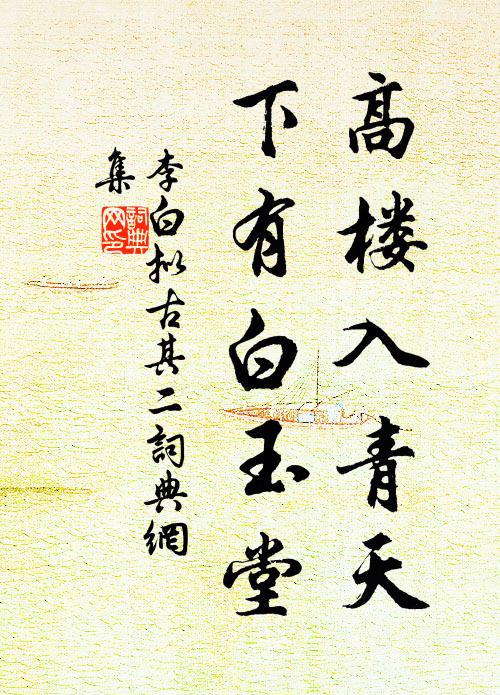 高楼入青天
下有白玉堂
李白拟古其二詞典網
集
詞典网印